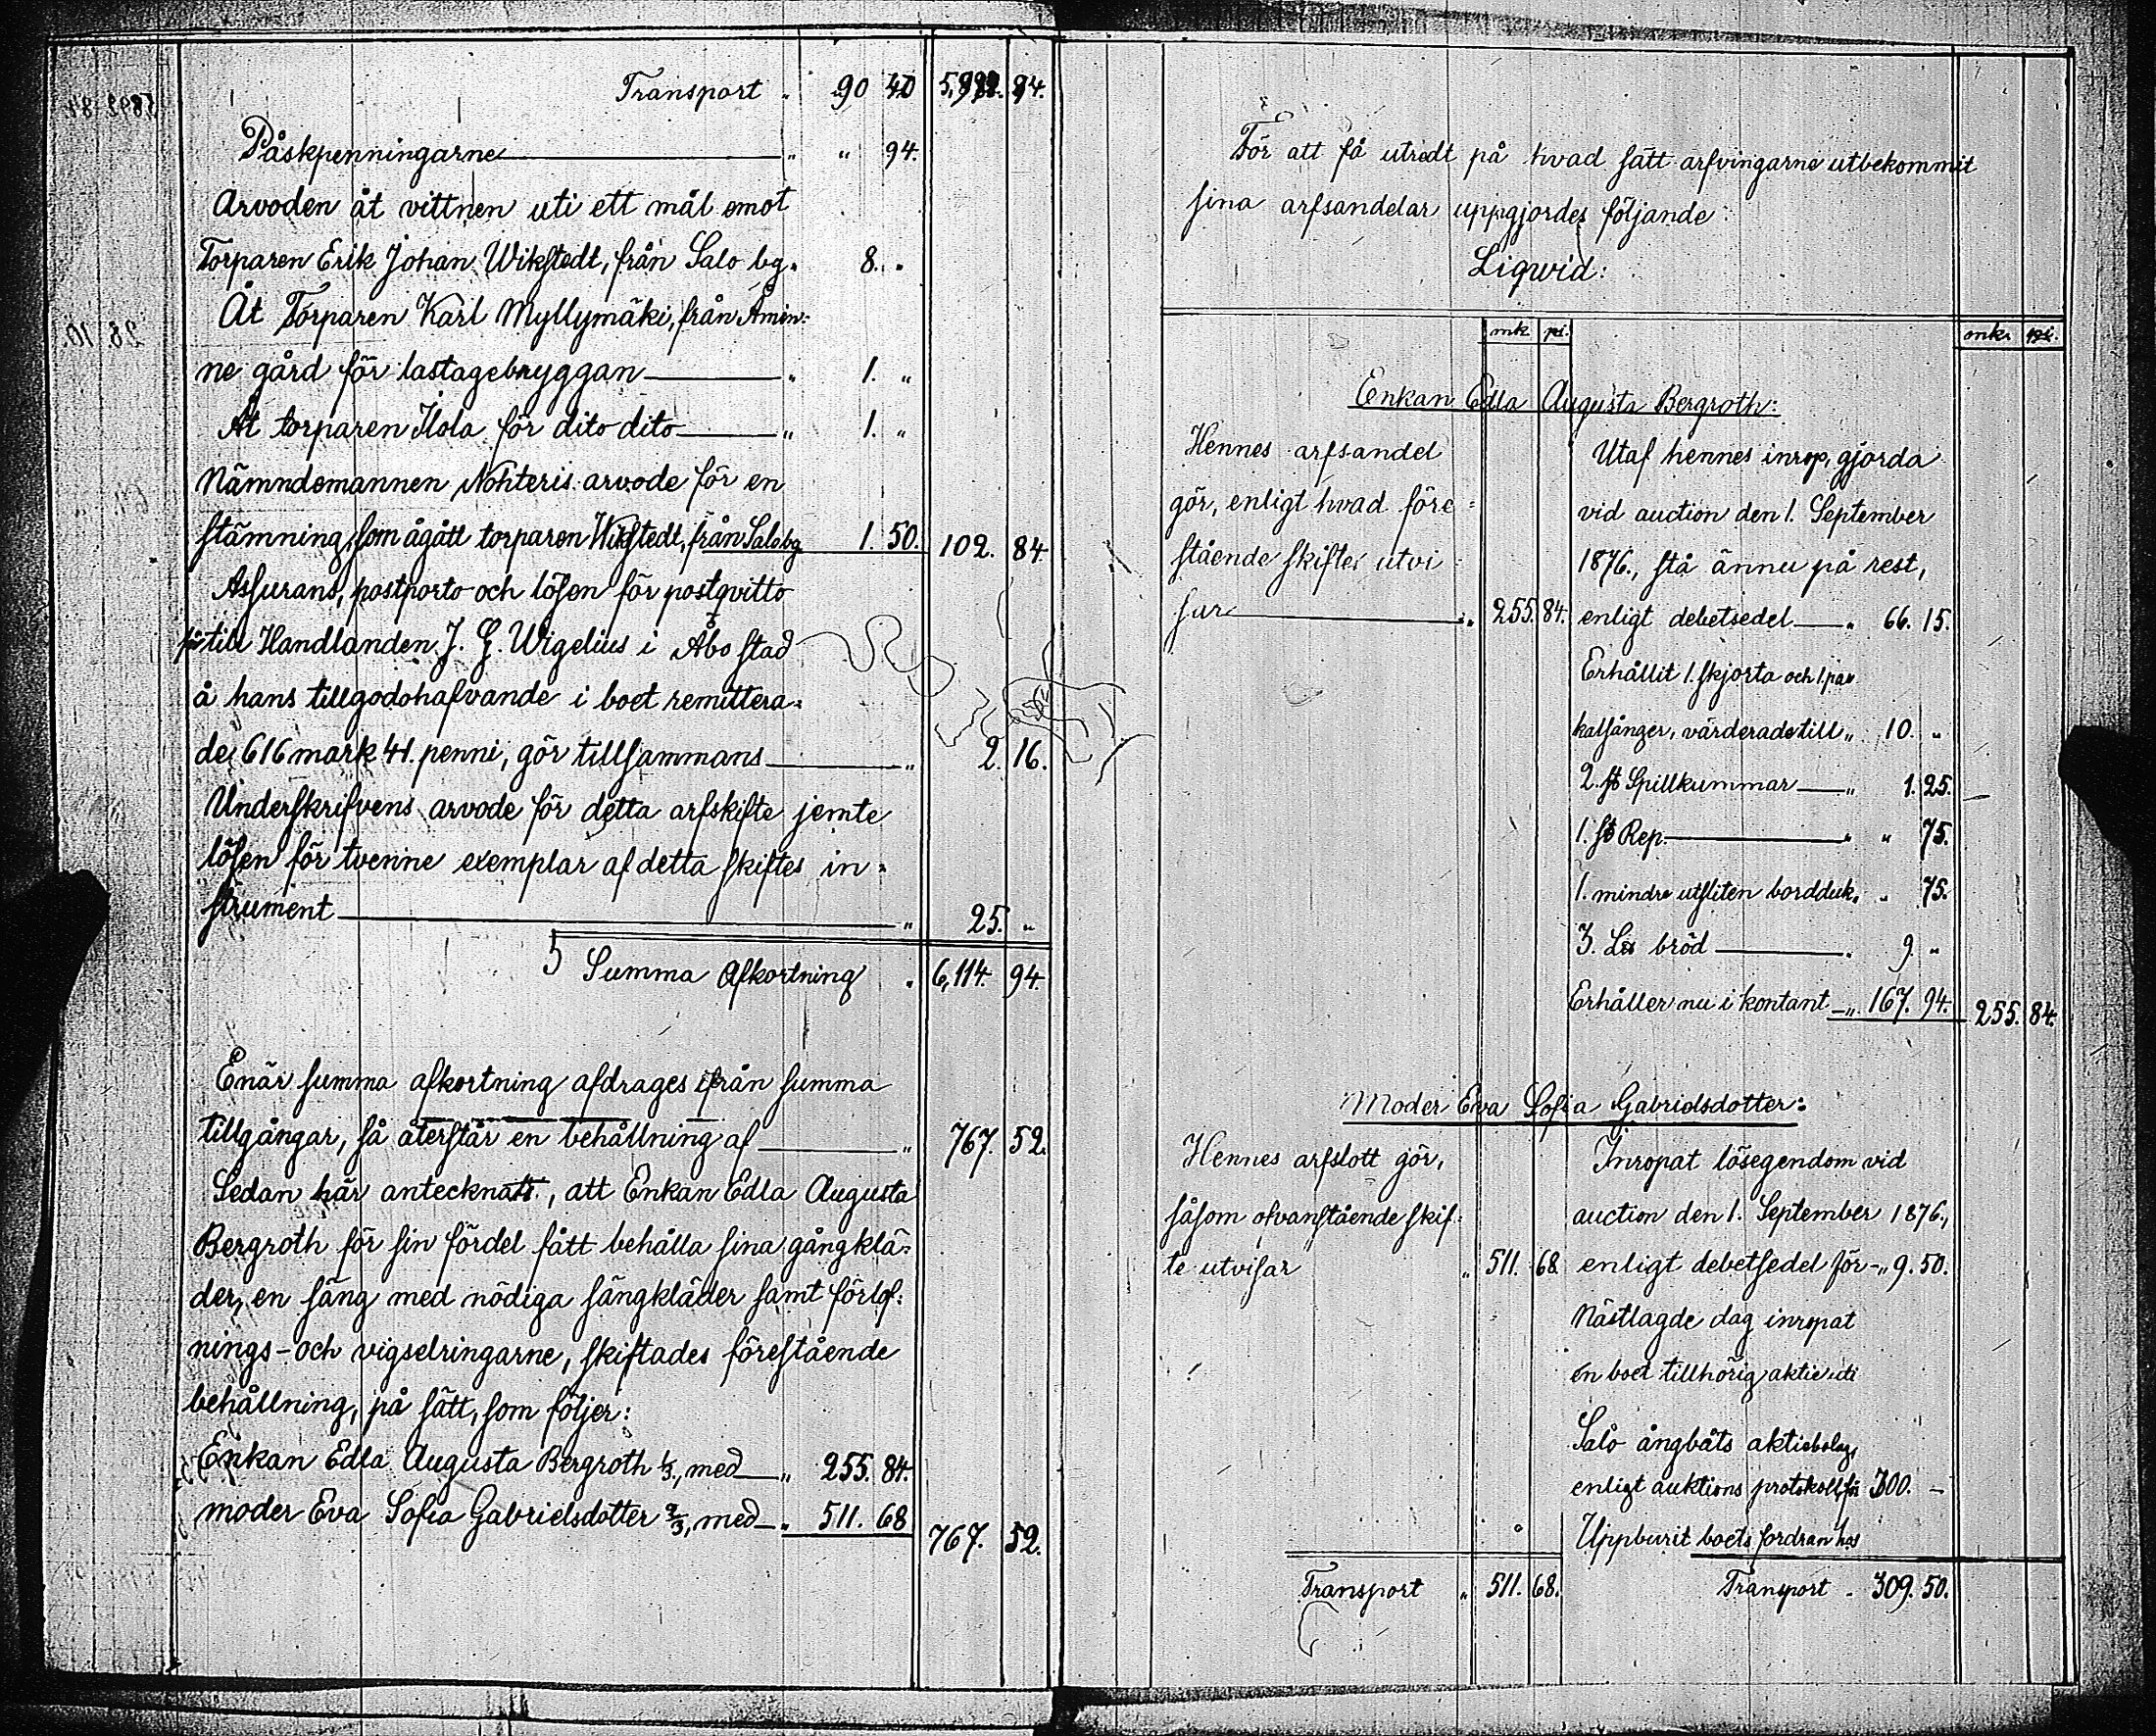 Transport „ 90 40 5,984. 94.
Påskpenningarne „ „ 94.
Arvoden åt vittnen uti ett mål emot
Torparen Erik Johan Wikstedt, från Salo bg. 8. „
Åt Torparen Karl Myllymäki, från Åmin-
ne gård för lastagebryggan „ 1. „
Åt torparen Ilola för dito dito „ 1. „
Nämndemannen Nohteris arvode för en
stämning, som ågått torparen Wikstedt, från Salo bg. 1. 50. 102. 84.
Assurans, postporto och lösen för postqvitto
på till Handlanden J. G. Wigelius i Åbo stad
å hans tillgodohafvande i boet remittera-
de 616 mark 41. penni, gör tillsammans „ 2. 16.
Underskrifvens arvode för detta arfskifte jemte
lösen för tvenne exemplar af detta skiftes in-
strument „ 25. „
Summa Afkortning „ 6,114. 94.
Enär summa afkortning afdrages ifrån summa
tillgångar, så återstår en behållning af „ 767. 52.
Sedan här antecknatt, att Enkan Edla Augusta
Bergroth för sin fördel fått behålla sina gångklä-
der, en säng med nödiga sängkläder samt förlof-
nings- och vigselringarne, skiftades förestående
behållning, på sätt, som följer:
Enkan Edla Augusta Bergroth 1/3, med „ 255. 84.
moder Eva Sofia Gabrielsdotter 2/3, med „ 511. 68 767. 52.
För att få utredt på hvad sätt arfvingarne utbekommit
sina arfsandelar uppgjordes följande
Liqvid:
mk. pi. mk. pi.
Enkan Edla Augusta Bergroth:
Hennes arfsandel
gör, enligt hvad före-
stående skiftes utvi-
sar „ 255. 84.
Utaf hennes inrop, gjorda
vid auction den 1. September
1876., stå ännu på rest,
enligt debetsedel „ 66. 15.
Erhållit 1. skjorta och 1. par
kalsånger, värderade till „ 10. „
2. st Spillkummar „ 1. 25.
1. st Rep. „ „ 75.
1. mindre utsliten bordduk. „ 75.
3. L℔ bröd „ 9. „
Erhåller nu i kontant „ 167. 94. 255. 84.
Moder Eva Sofia Gabrielsdotter:
Hennes arfslott gör,
såsom ofvanstående skif-
te utvisar „ 511. 68
Inropat lösegendom vid
auction den 1. September 1876.,
enligt debetsedel för „ 9. 50.
Nästlagde dag inropat
en boet tillhörig aktie uti
Salo ångbåts aktiebolag,
enligt auktions protokoll, för 300. –
Uppburit boets fordran hos
Transport „ 511. 68.
Transport „ 309. 50.